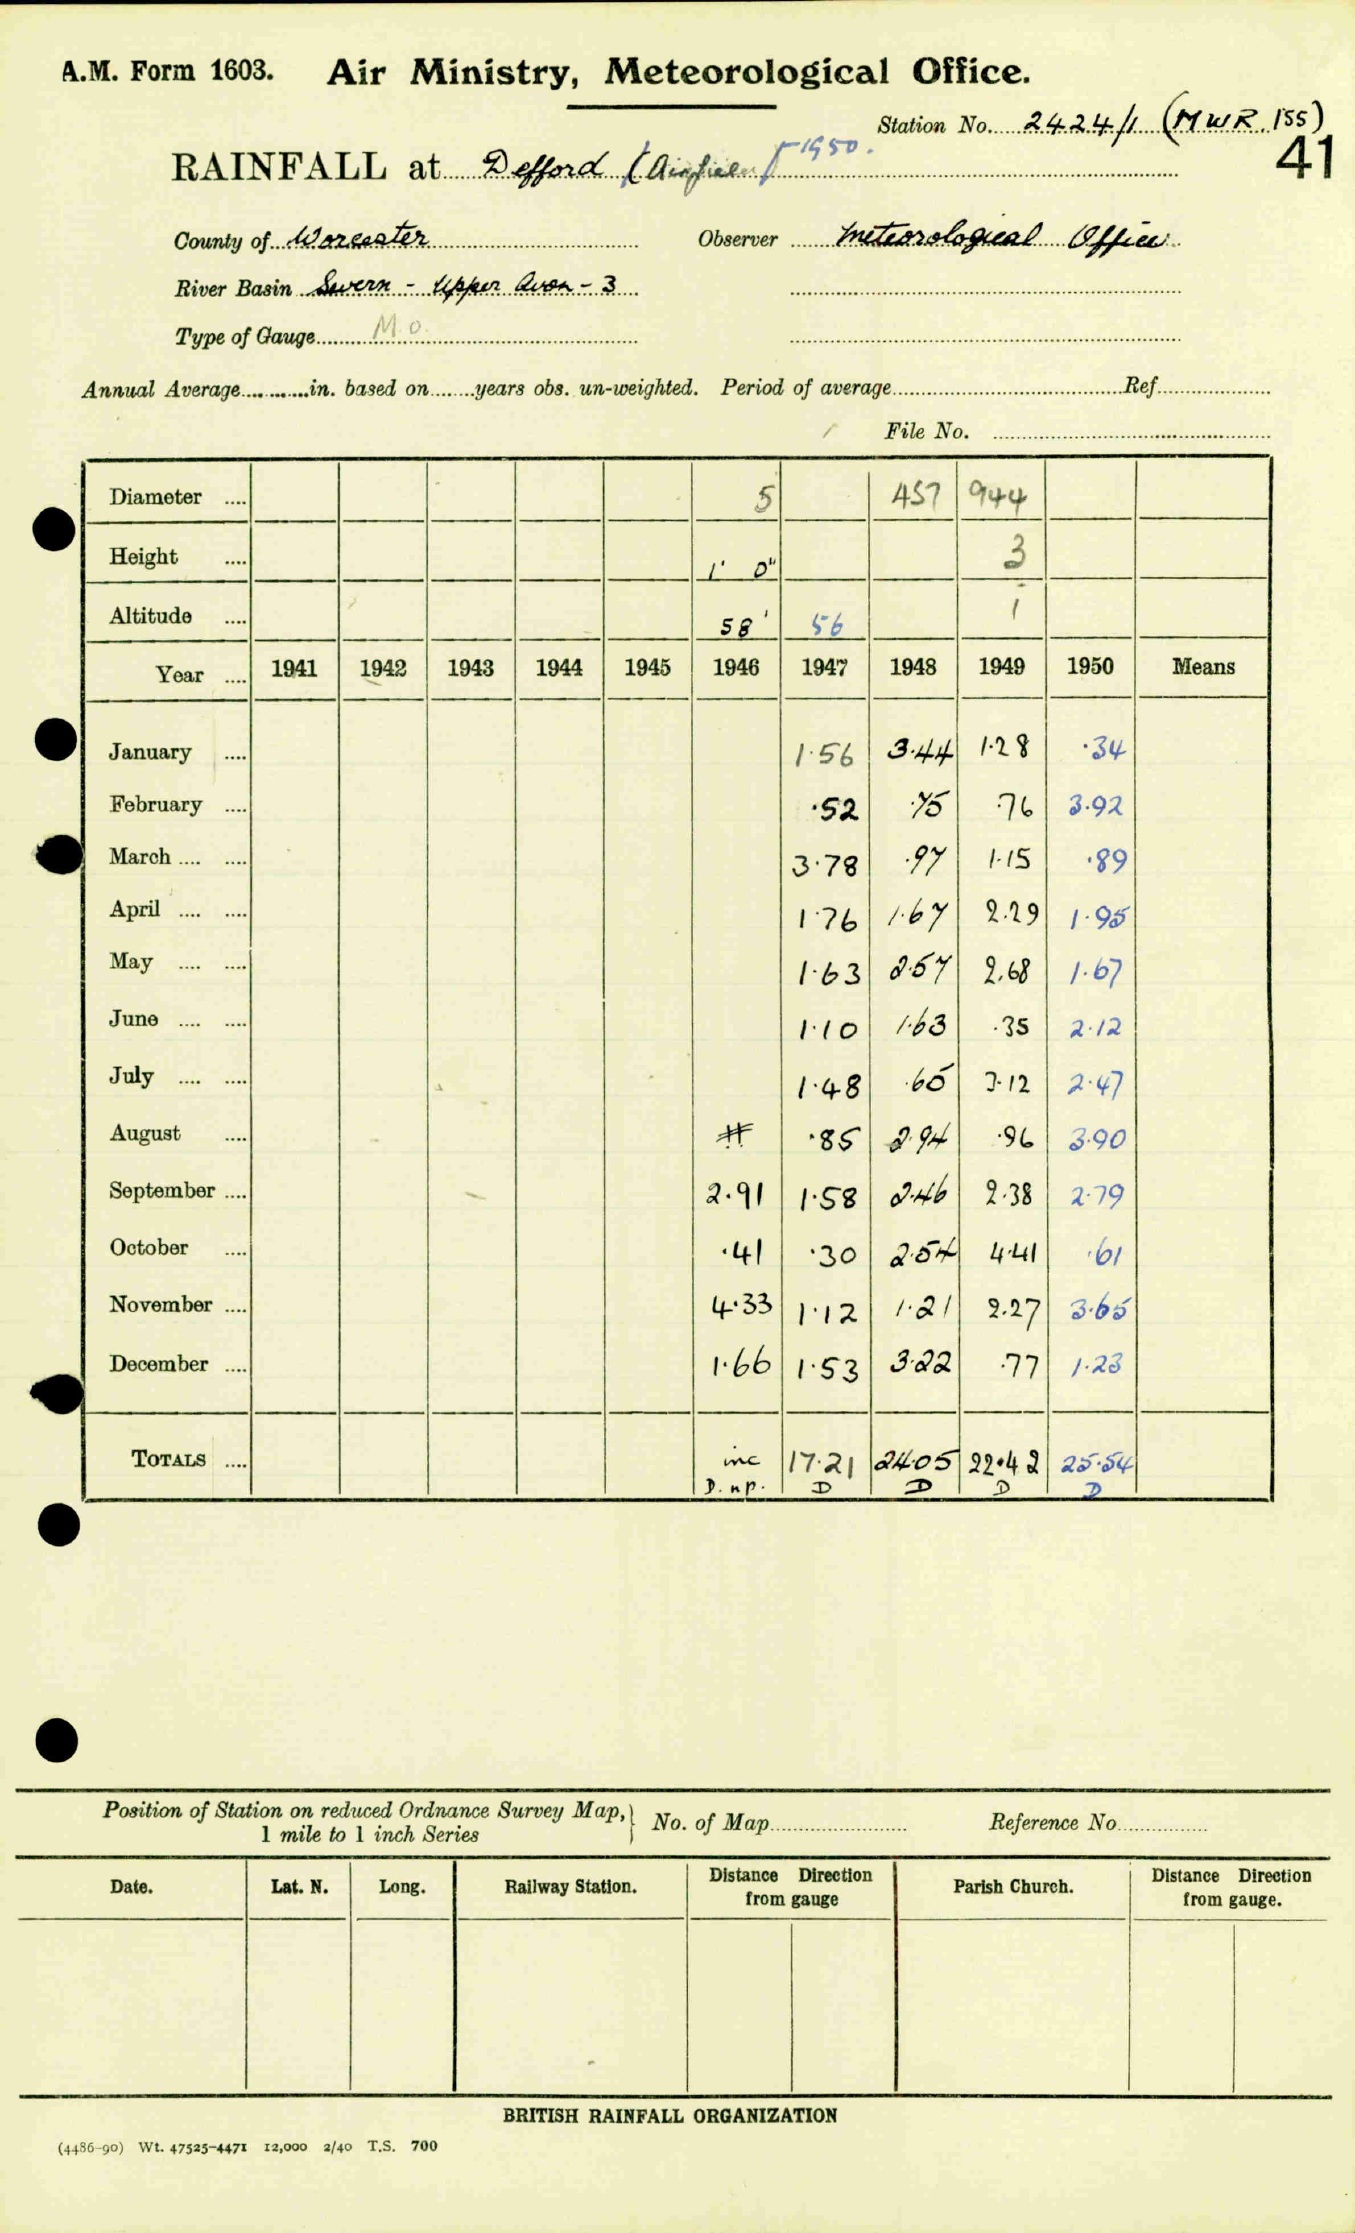 A.M. Form 1603. Air Ministry, Meteorological Office.
Station No. 2424/1 (MWR. 155)
41
RAINFALL at Defford (Airfield) 1950.
County of Worcester Observer Meteorological Office
River Basin Severn - Upper Avon - 3
Type of Gauge M.O.
Annual Average in. based on years obs. un-weighted. Period of average Ref
File No.
Diameter 5 457 944
Height 1' 0" 3
Altitude 58' 56 1
Year 1941 1942 1943 1944 1945 1946 1947 1948 1949 1950 Means
January 1.56 3.44 1.28 .34
February .52 .75 .76 3.92
March 3.78 .97 1.15 .89
April 1.76 1.67 2.29 1.95
May 1.63 2.57 2.68 1.67
June 1.10 1.63 .35 2.12
July 1.48 .65 3.12 2.47
August # .85 2.94 .96 3.90
September 2.91 1.58 2.46 2.38 2.79
October .41 .30 2.54 4.41 .61
November 4.33 1.12 1.21 2.27 3.65
December 1.66 1.53 3.22 .77 1.23
TOTALS inc 17.21 24.05 22.42 25.54
D. np. D D D D
Position of Station on reduced Ordnance Survey Map, No. of Map Reference No
1 mile to 1 inch Series
Date. Lat. N. Long. Railway Station. Distance Direction from gauge Parish Church. Distance Direction from gauge.
BRITISH RAINFALL ORGANIZATION
(4486-90) Wt. 47525-4471 12,000 2/40 T.S. 700